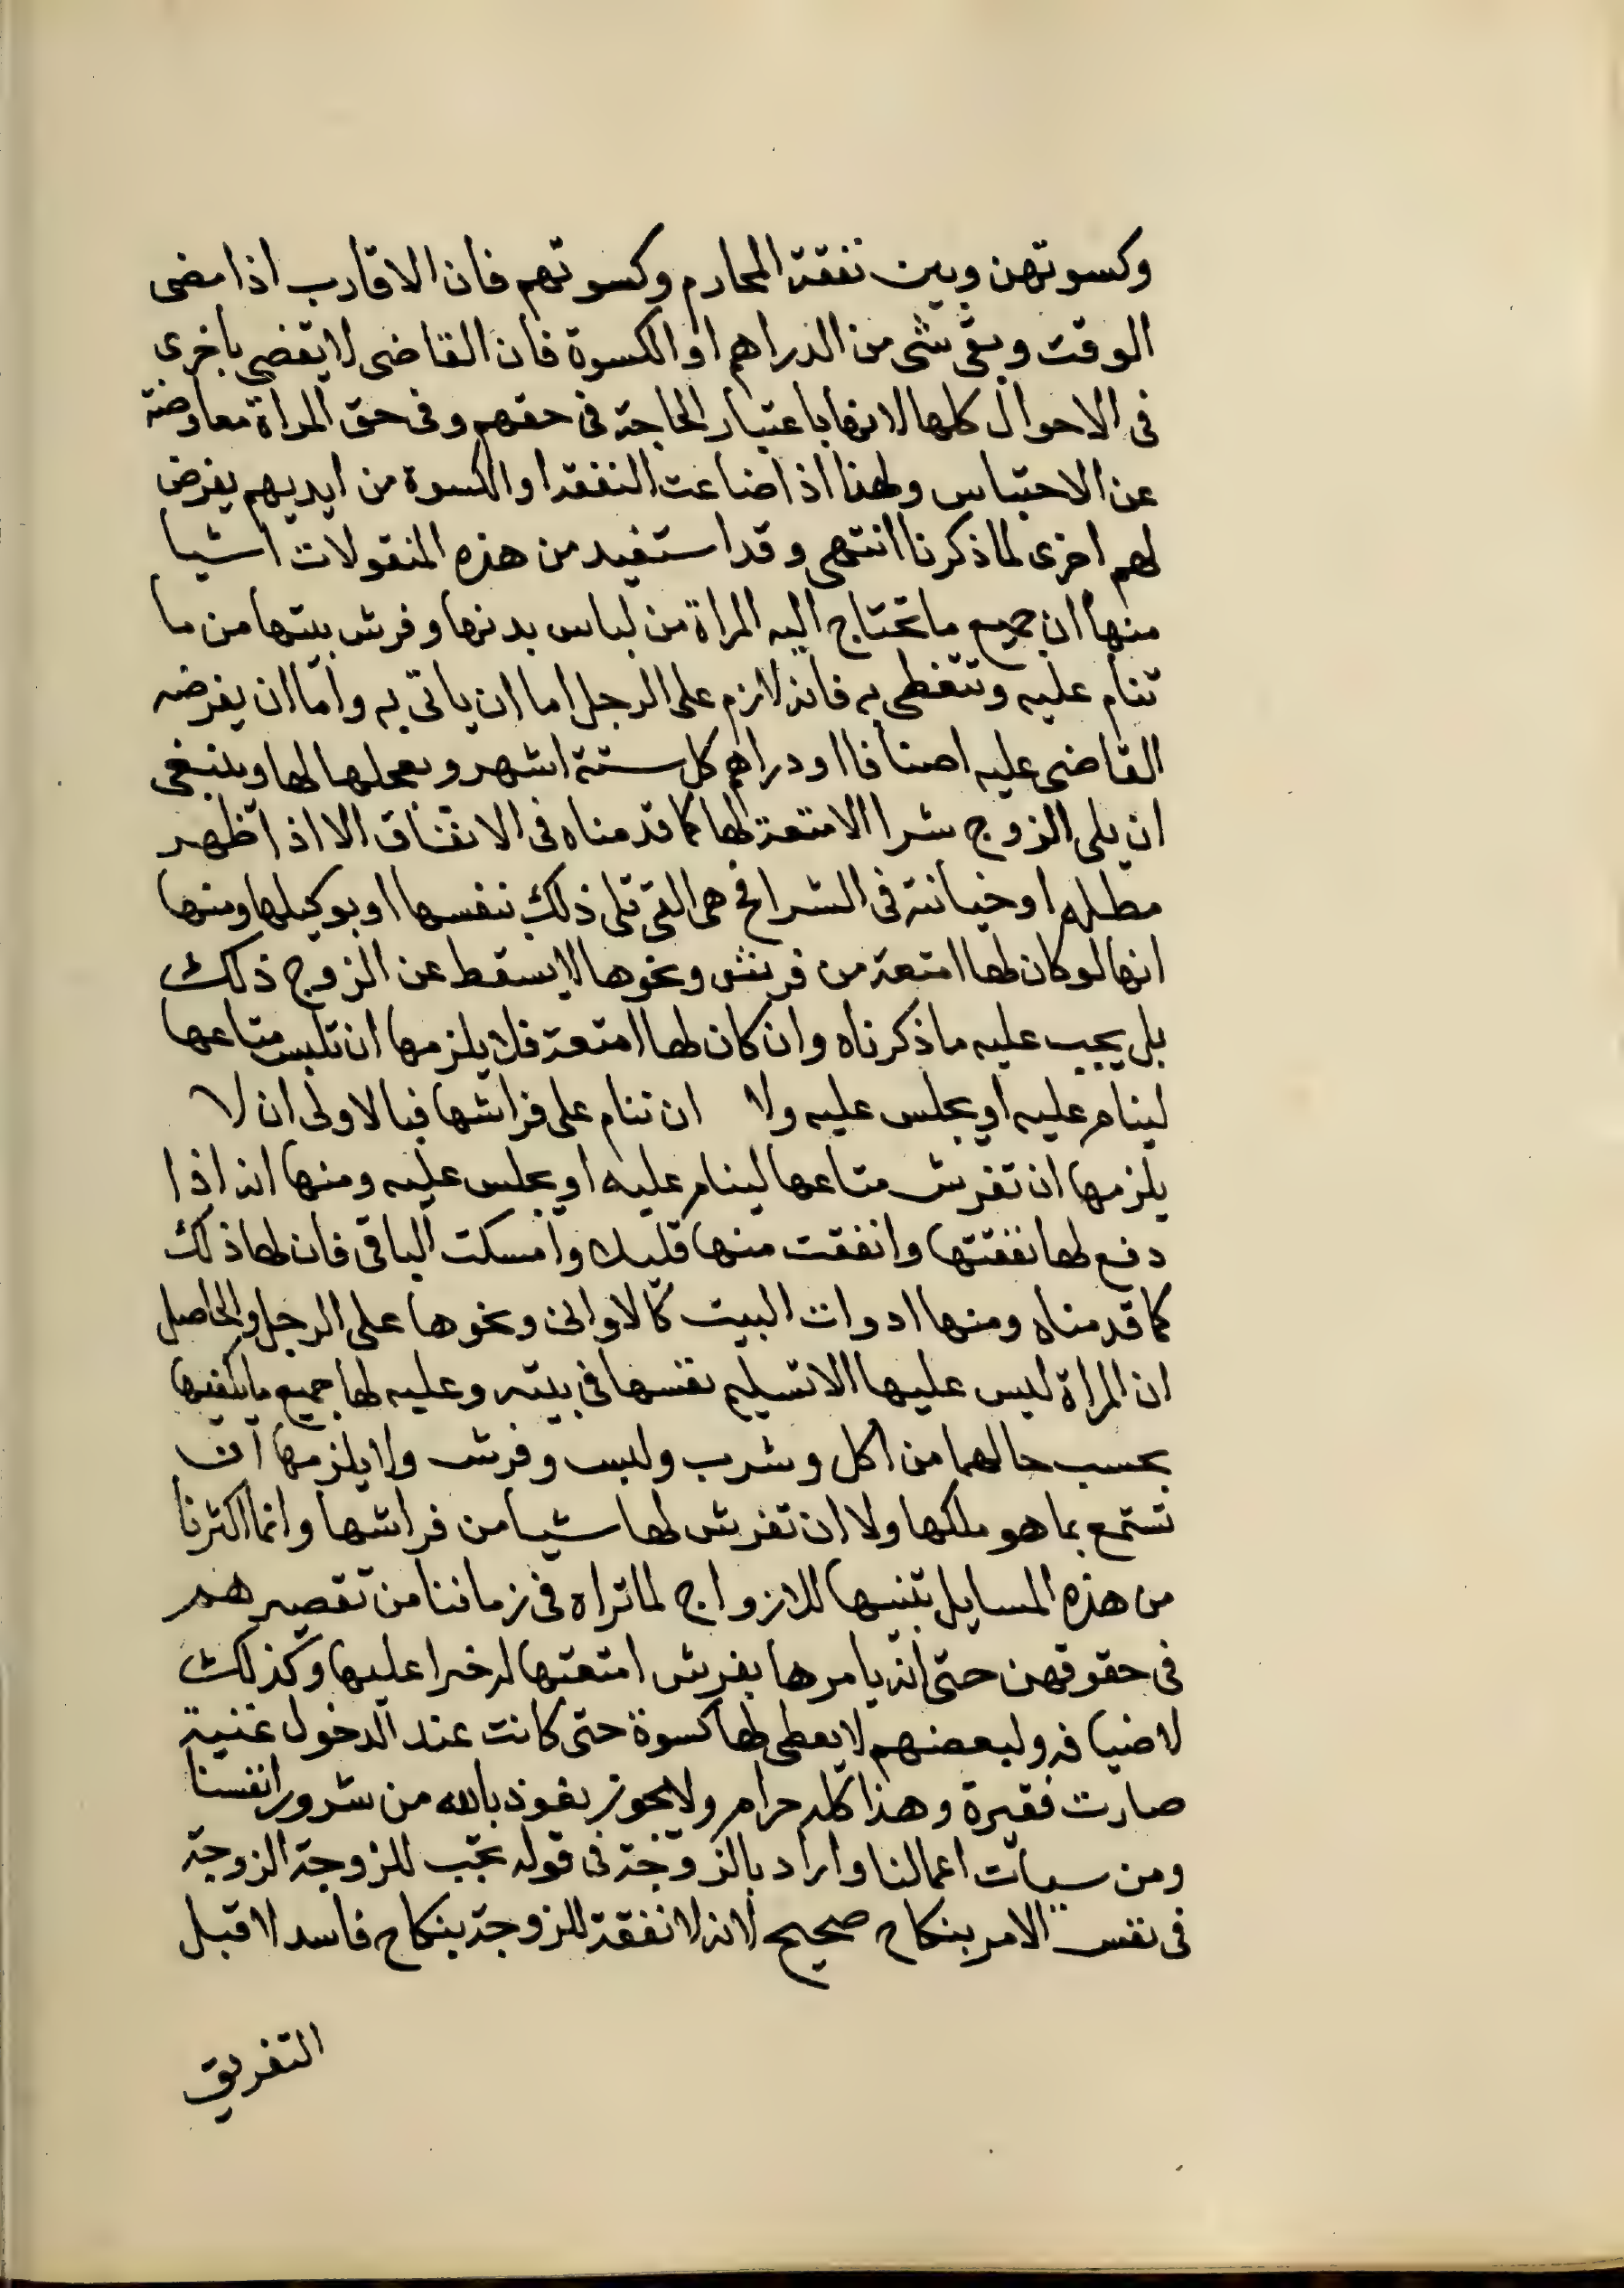 وكسوتهن وبين نفقة المحارم وكسوتهم فان الاقارب اذا مضى
الوقت وبقى شى من الدراهم او الكسوة فان القاضى لا يقضي باخرى
فى الاحوال كلها لانها باعتبار الحاجة فى حقهم وفى حق المراة معاوضة
عن الاحتباس ولهذا اذا ضاعت النفقة او الكسوة من ايديهم يفرض
لهم اخرى لما ذكرنا انتهى وقد استفيد من هذه المنقولات اشيا
منها ان جميع ما تحتاج اليه المراة من لباس بدنها وفرش بيتها من ما
تنام عليه وتتغطى به فانه لازم على الرجل اما ان ياتى به واما ان يفرضه
القاضى عليه اصنافا او دراهم كل ستة اشهر ويعجلها لها وينبغى
ان يلى الزوج شرا الامتعة لها كما قدمناه فى الانفاق الا اذا ظهر
مطله او خيانته فى الشرا فح هى التى تلى ذلك بنفسها او بوكيلها ومنها
انها لو كان لها امتعة من فرش ونحوها لا يسقط عن الزوج ذلك
بل يجب عليه ما ذكرناه وان كان لها امتعة فلا يلزمها ان تلبس متاعها
لينام عليه او يجلس عليه ولا ان تنام على فراشها فبالاولى ان لا
يلزمها ان تفرش متاعها لينام عليه او يجلس عليه ومنها انه اذا
دفع لها نفقتها وانفقت منها قليلا وامسكت الباقى فان لها ذلك
كما قدمناه ومنها ادوات البيت كالاوانى ونحوها على الرجل والحاصل
ان المراة ليس عليها الا تسليم نفسها فى بيته وعليه لها جميع ما يكفيها
بحسب حالهما من اكل وشرب ولبس وفرش ولا يلزمها ان
تستمع بما هو ملكها ولا ان تفرش لها شيا من فراشها وانما اكثرنا
من هذه المسايل تنبيها للازواج لما تراه فى زماننا من تقصيرهم
فى حقوقهن حتى انه يامرها بفرش امتعتها له جبرا عليها وكذلك
لاضيافه ولبعضهم لا يعطى لها كسوة حتى كانت عند الدخول غنية
صارت فقيرة وهذا كله حرام ولا يجوز نعوذ بالله من شرور انفسنا
ومن سيات اعمالنا واراد بالزوجة فى قوله تجب للزوجة الزوجة
فى نفس الامر بنكاح صحيح لانه لا نفقة للزوجة بنكاح فاسد لا قبل
التفريق